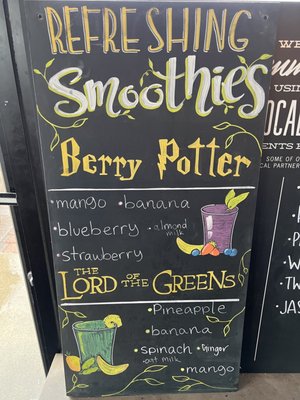 REFRESHING
Smoothies
Berry Potter
•mango •banana
•blueberry •almond milk
•strawberry
THE LORD OF THE GREENS
•Pineapple
•banana
•spinach •Ginger
•oat milk
•mango
WE
USI
OCA
ENTS
AL PARTNER